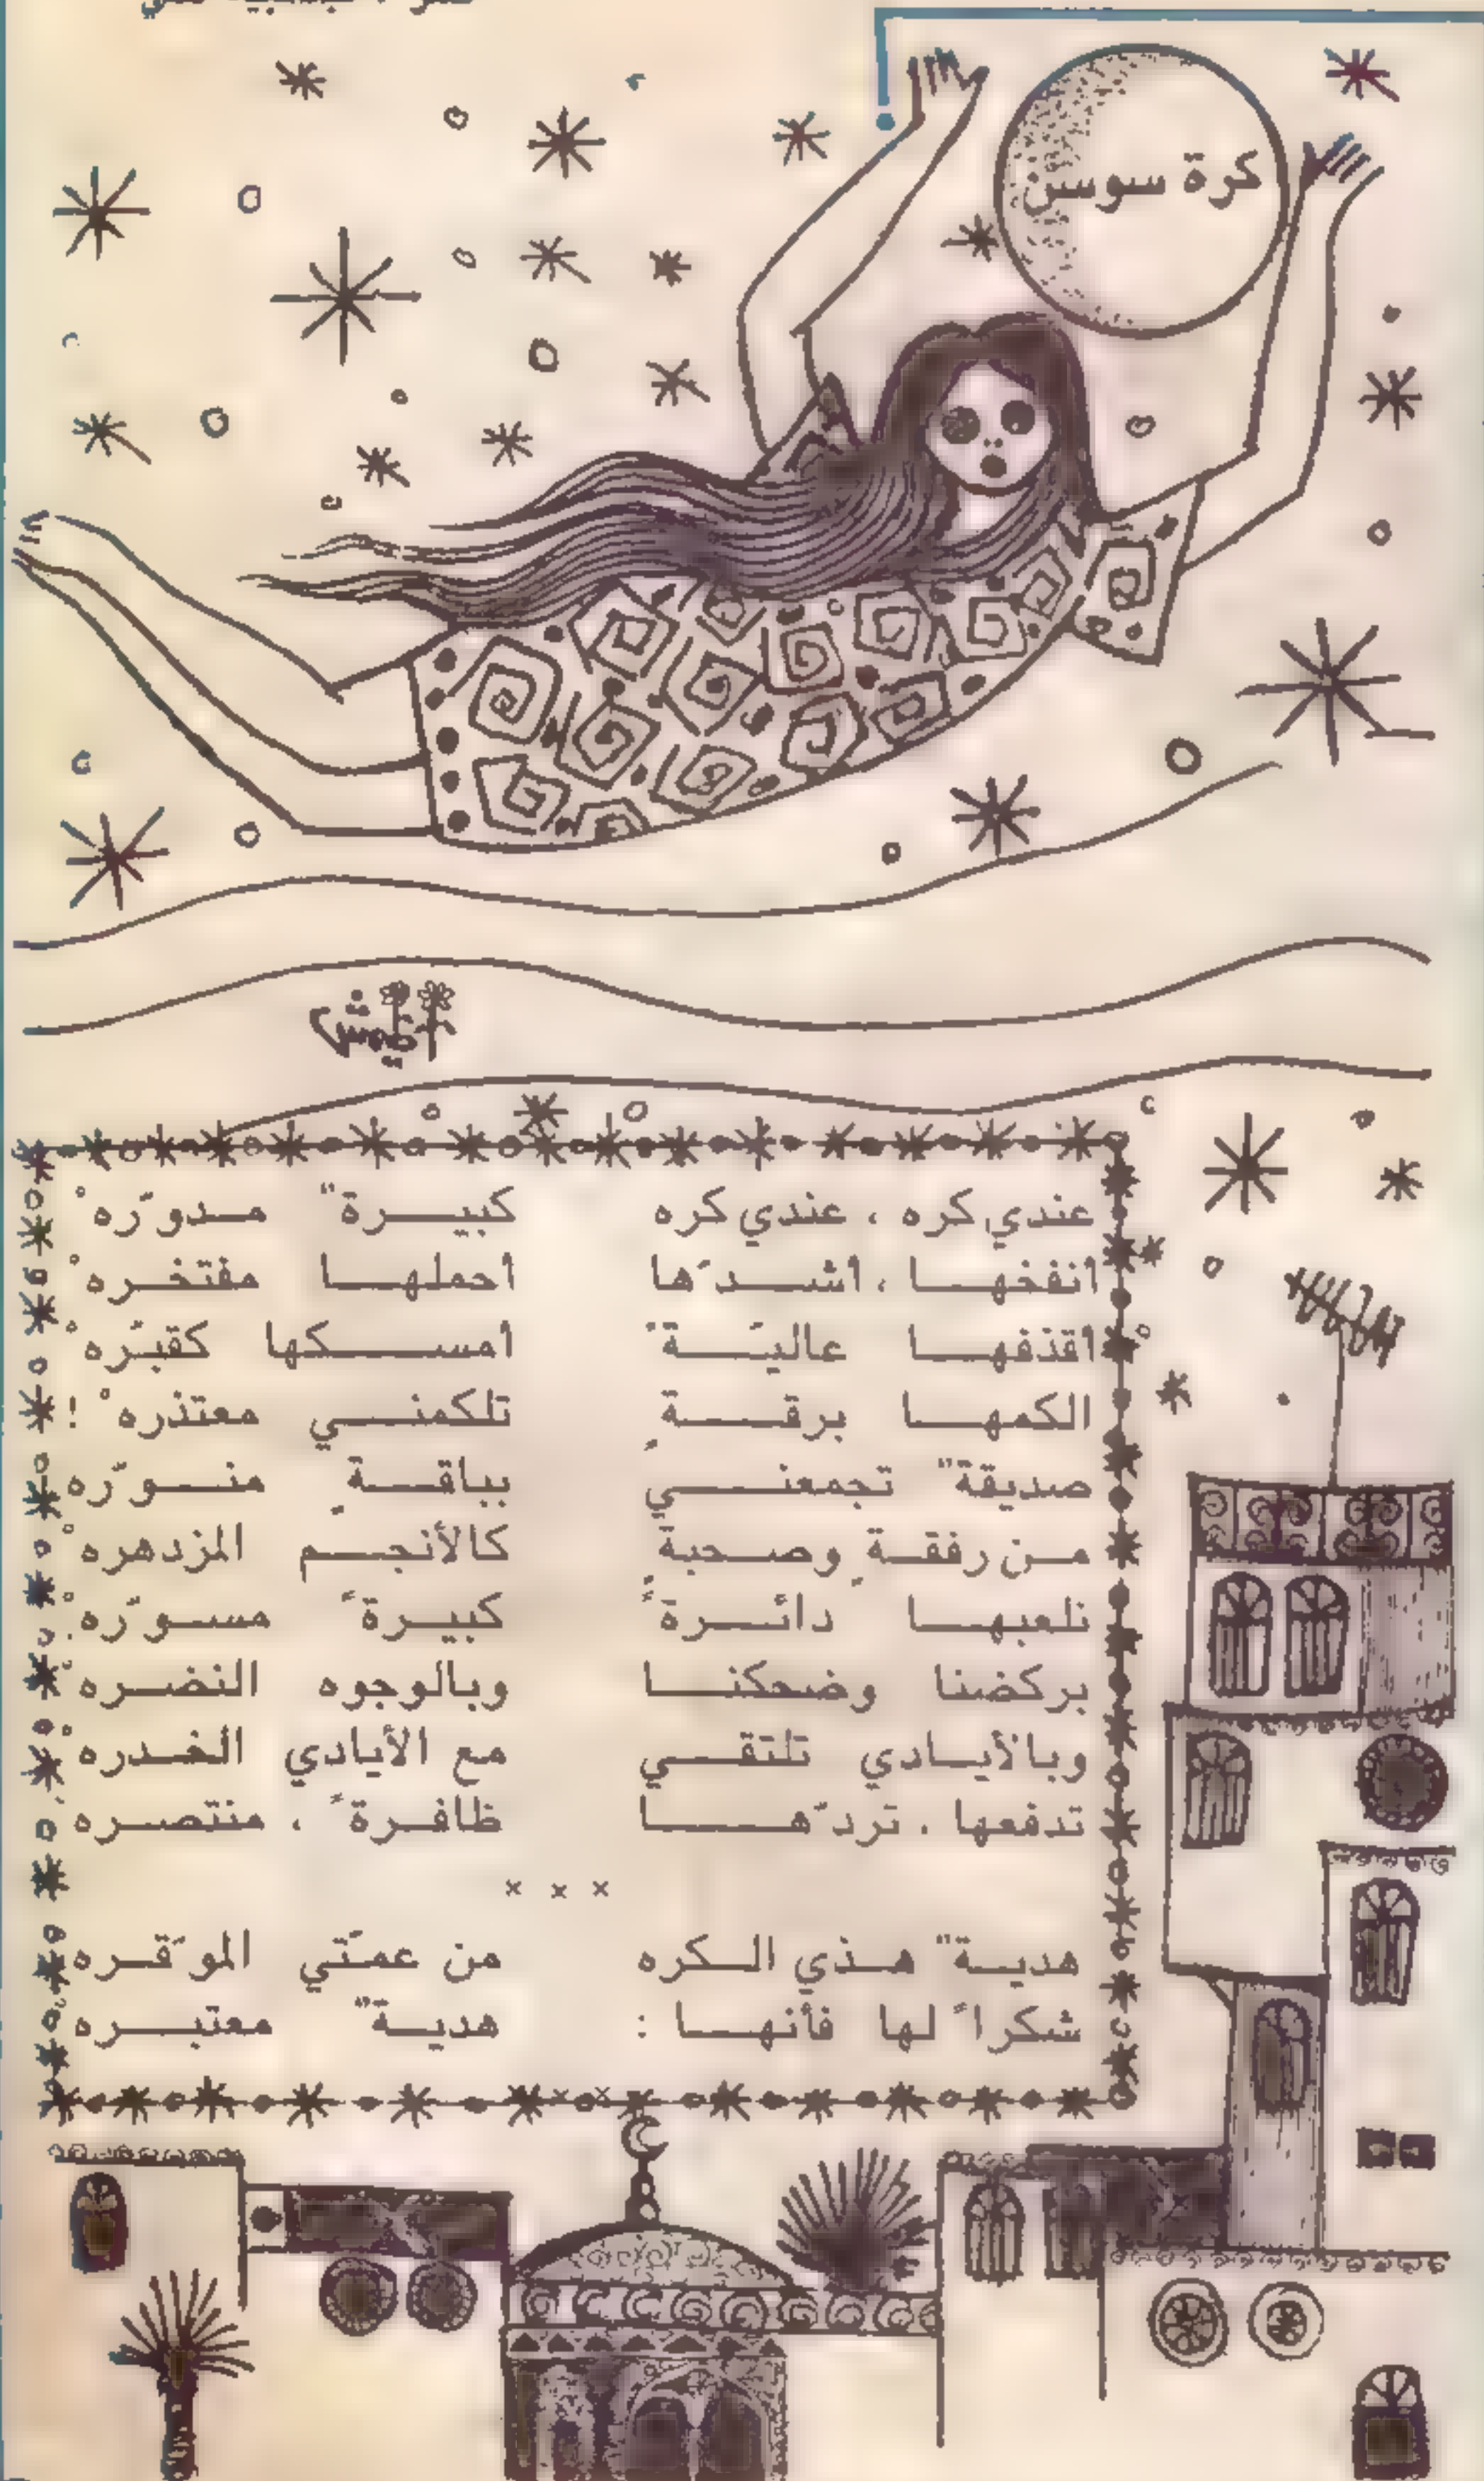 كرة سوسن
عندي كره ، عندي كره كبيـرة" مـدوّره°
أنفخهـا ، أشـدّها أحملهـا مفتخـره°
أقذفهـا عاليـّة أمسـكها كقبّره°
الكمهـا برقـةٍ تلكمنـي معتذره° !
صديقة" تجمعنـي بباقـةٍ منـوّره
مـن رفقـةٍ وصـحبةٍ كالأنجـم المزدهره°
نلعبهـا دائـرةً كبيـرةً مسـوّره°
بركضنا وضحكنـا وبالوجوه النضـره°
وبالأيـادي تلتقـي مع الأيادي الخـدره°
تدفعها ، تردّهـا ظافـرةً ، منتصـره°
× × ×
هديـة" هـذي الـكره من عمّتي الموَقـره
شكراً لها فأنهـا : هديـة" معتبـره